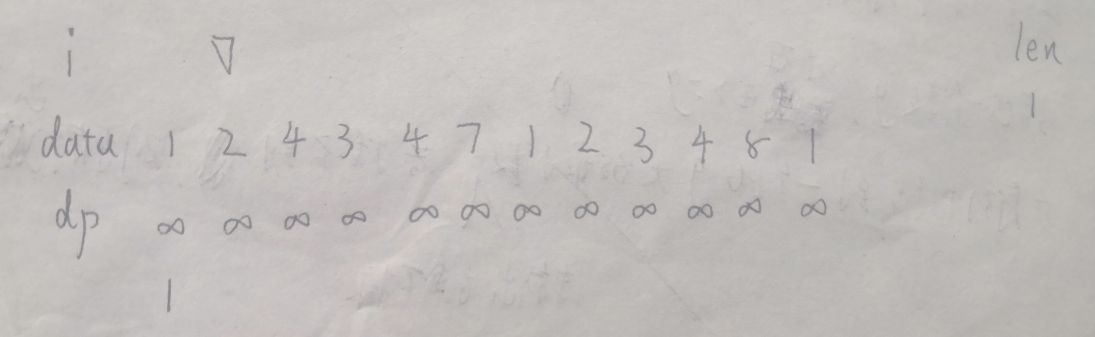 i ▽ len
1
data 1 2 4 3 4 7 1 2 3 4 8 1
dp ∞ ∞ ∞ ∞ ∞ ∞ ∞ ∞ ∞ ∞ ∞ ∞
1